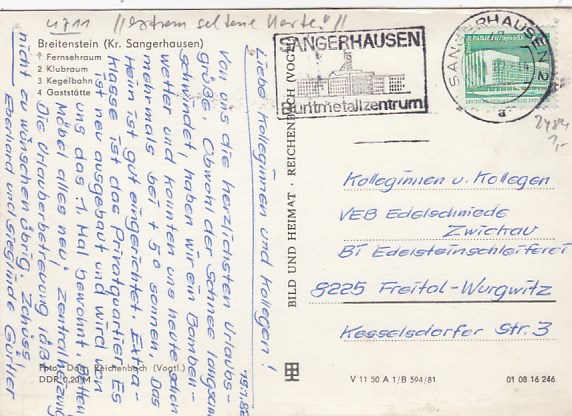 4711 !!extrem seltene Karte!!
Breitenstein (Kr. Sangerhausen)
1 Fernsehraum
2 Klubraum
3 Kegelbahn
4 Gaststätte
SANGERHAUSEN
Buntmetallzentrum
SANGERHAUSEN 2
a
2484
1,-
Liebe Kolleginnen und Kollegen!
Von uns die herzlichsten Urlaubs-
grüße. Obwohl der Schnee langsam
schwindet, haben wir ein Bomben-
wetter und konnten uns heute schon
mehrmals bei +50 sonnen. Das
Heim ist gut eingerichtet. Extra-
klasse ist das Privatquartier. Es
ist neu ausgebaut und wird von
uns das 1. Mal bewohnt. Betten
Möbel alles neu, Zentralheizung
Die Urlauberbetreuung läßt
nicht zu wünschen übrig.
Eberhard und Sieglinde Gürtler
BILD UND HEIMAT · REICHENBACH (VOGTL)
Kolleginnen u. Kollegen
VEB Edelschmiede
Zwickau
BT Edelsteinschleiferei
8225 Freital-Wurgwitz
Kesselsdorfer Str. 3
Foto: Reichenbach (Vogtl.)
DDR 0,20 M
V 11 50 A 1/B 594/81
01 08 16 246